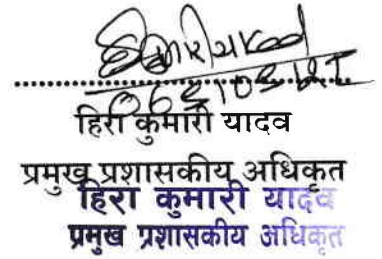 हिरा कुमारी यादव
प्रमुख प्रशासकीय अधिकृत
हिरा कुमारी यादव
प्रमुख प्रशासकीय अधिकृत